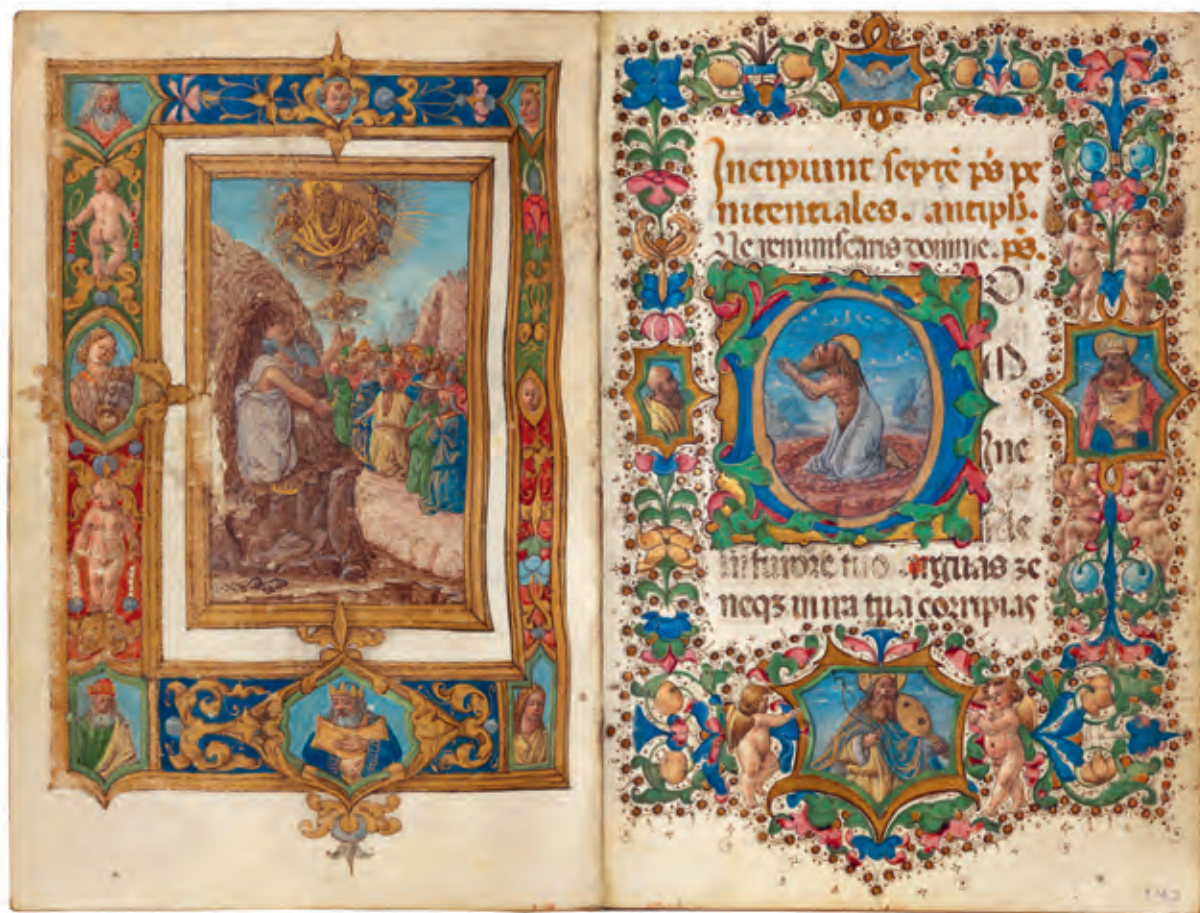 Incipiunt septē ps̄ pe
nitentiales. antiph̄.
Ne reminiscaris domine. ps̄.
D
O
M
Ine
ne
in furore tuo arguas me
neqȝ in ira tua corripias